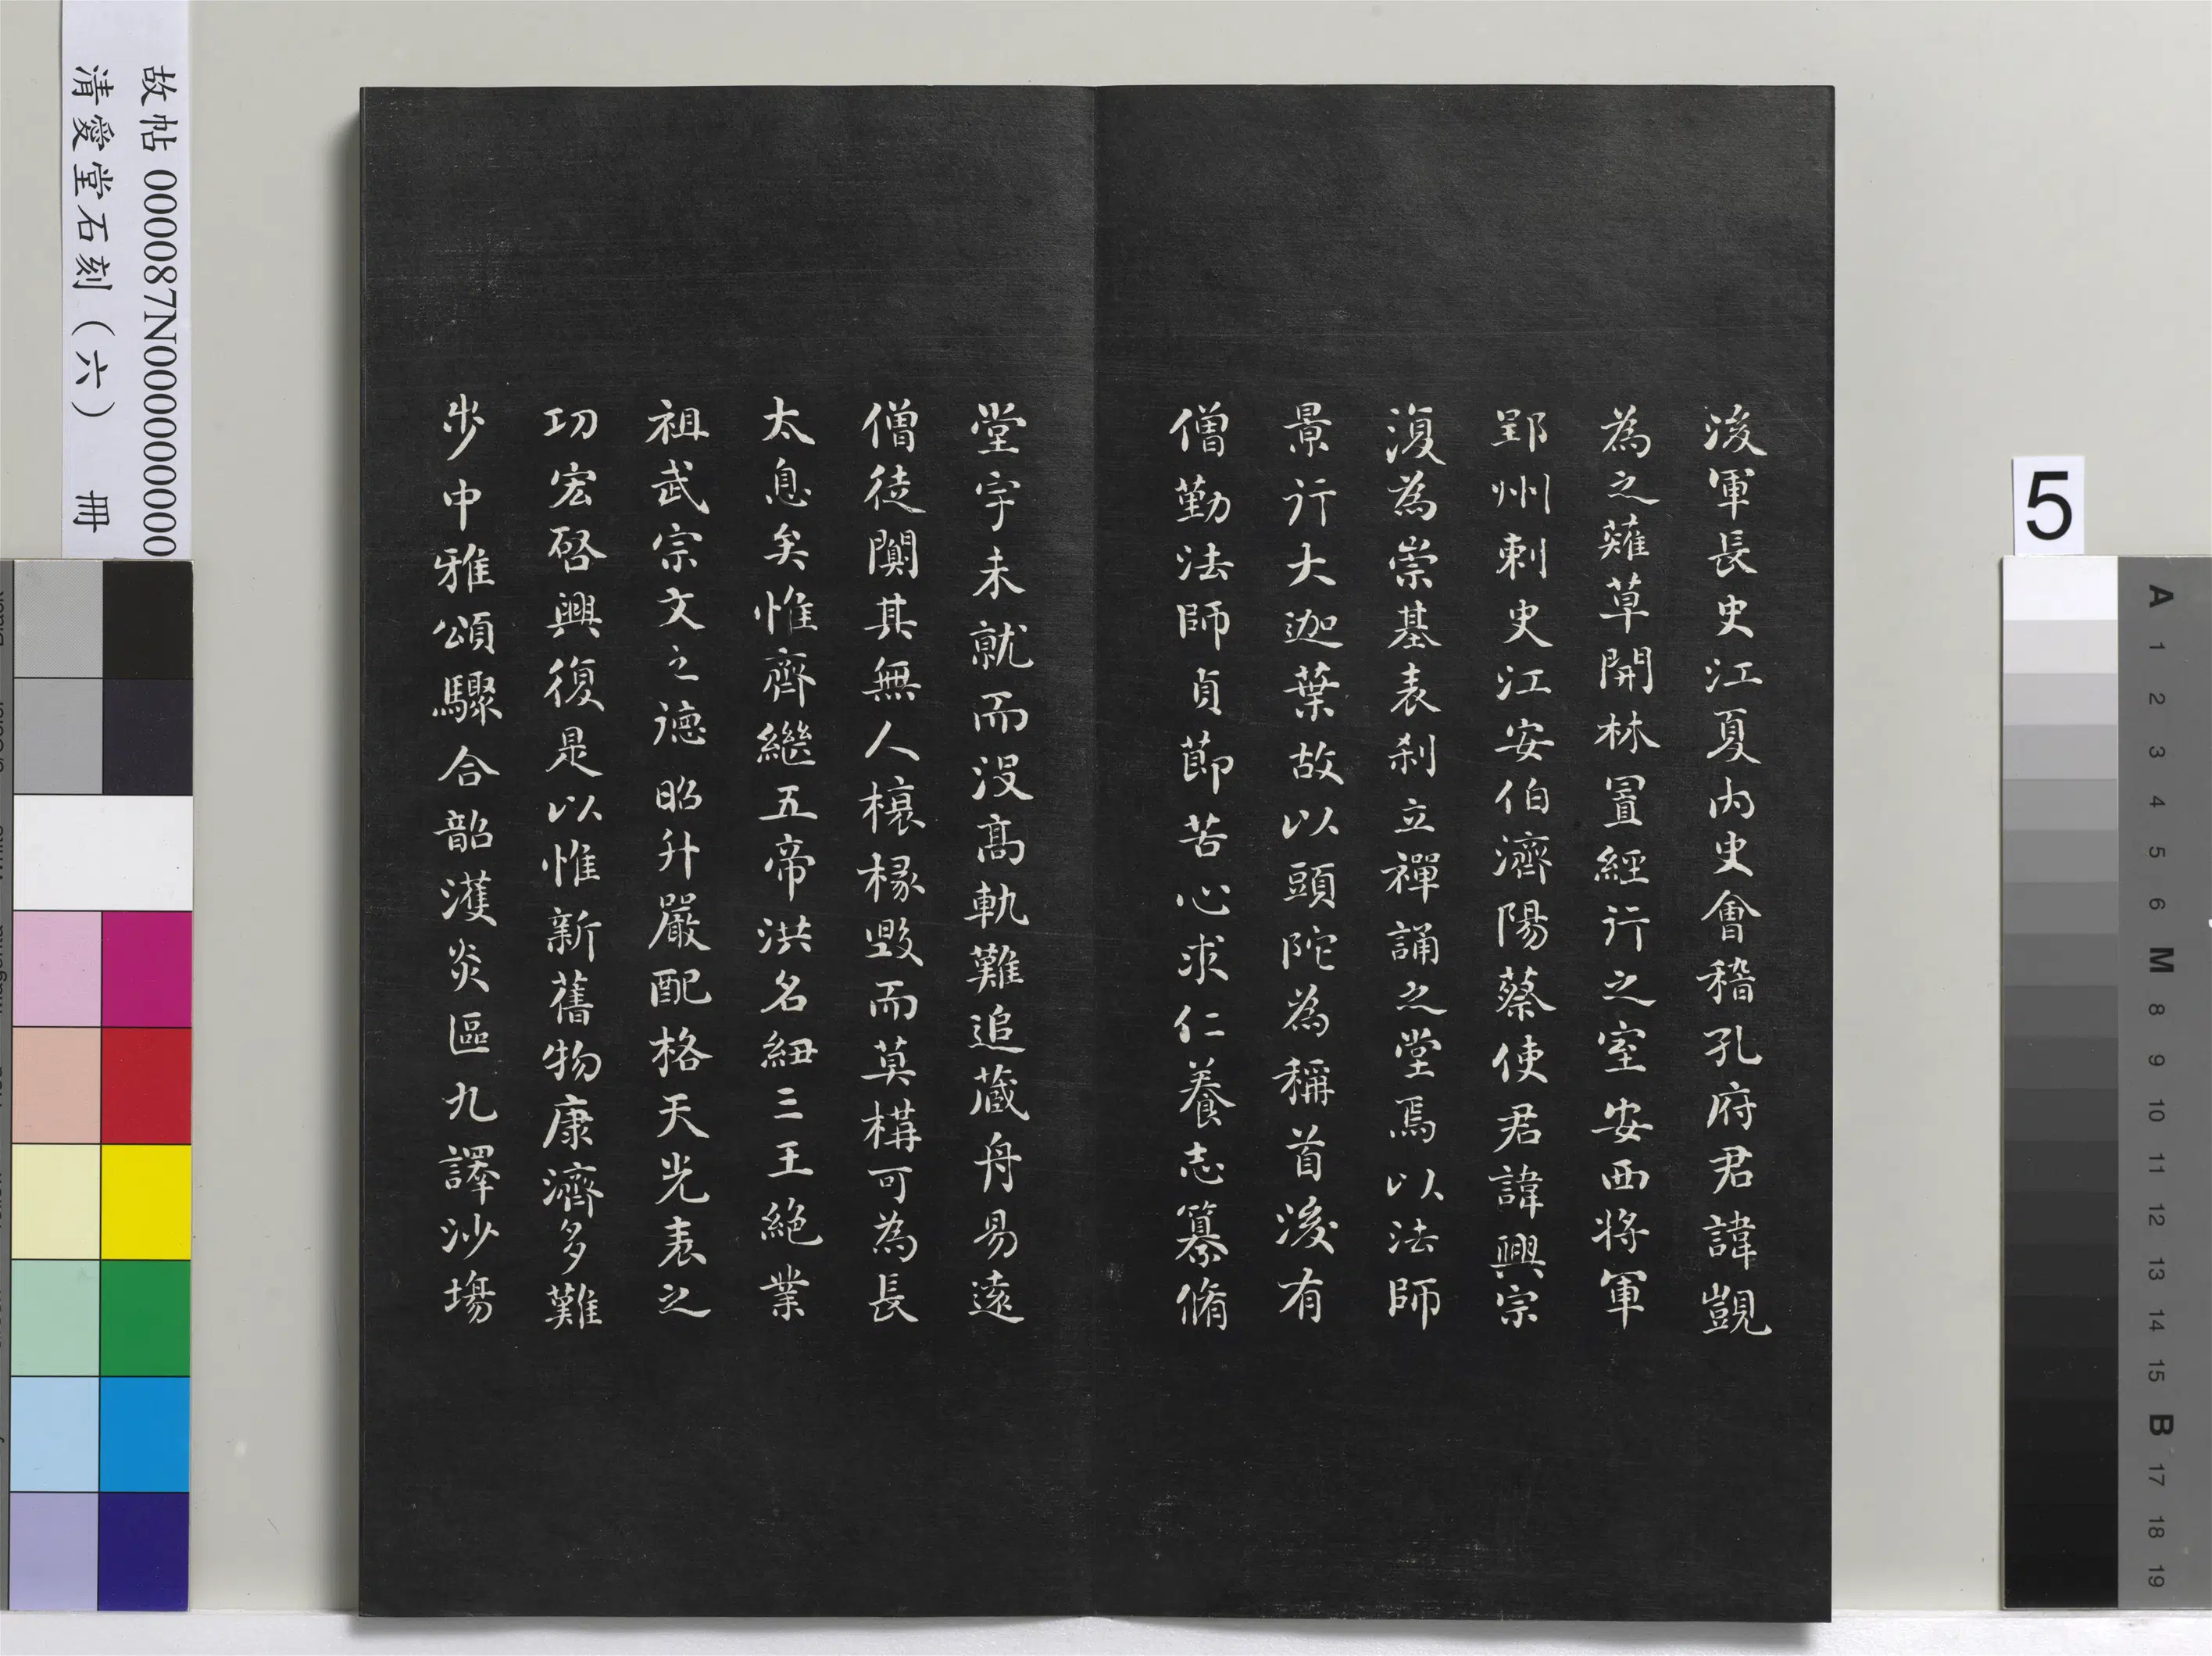 後軍長史江夏內史會稽孔府君諱覬
為之薙草開林置經行之室安西將軍
郢州刺史江安伯濟陽蔡使君諱興宗
復為崇基表刹立禪誦之堂焉以法師
景行大迦葉故以頭陀為稱首後有
僧勤法師貞節苦心求仁養志纂脩
堂宇未就而沒高軌難追藏舟易遠
僧徒闃其無人榱椽毀而莫構可為長
太息矣惟齊繼五帝洪名紐三王絕業
祖武宗文之德昭升嚴配格天光表之
功宏啓興復是以惟新舊物康濟多難
步中雅頌驟合韶濩炎區九譯沙場
故帖 000087N000000000
清愛堂石刻（六） 冊
5
A
1
2
3
4
5
6
M
8
9
10
11
12
13
14
15
B
17
18
19